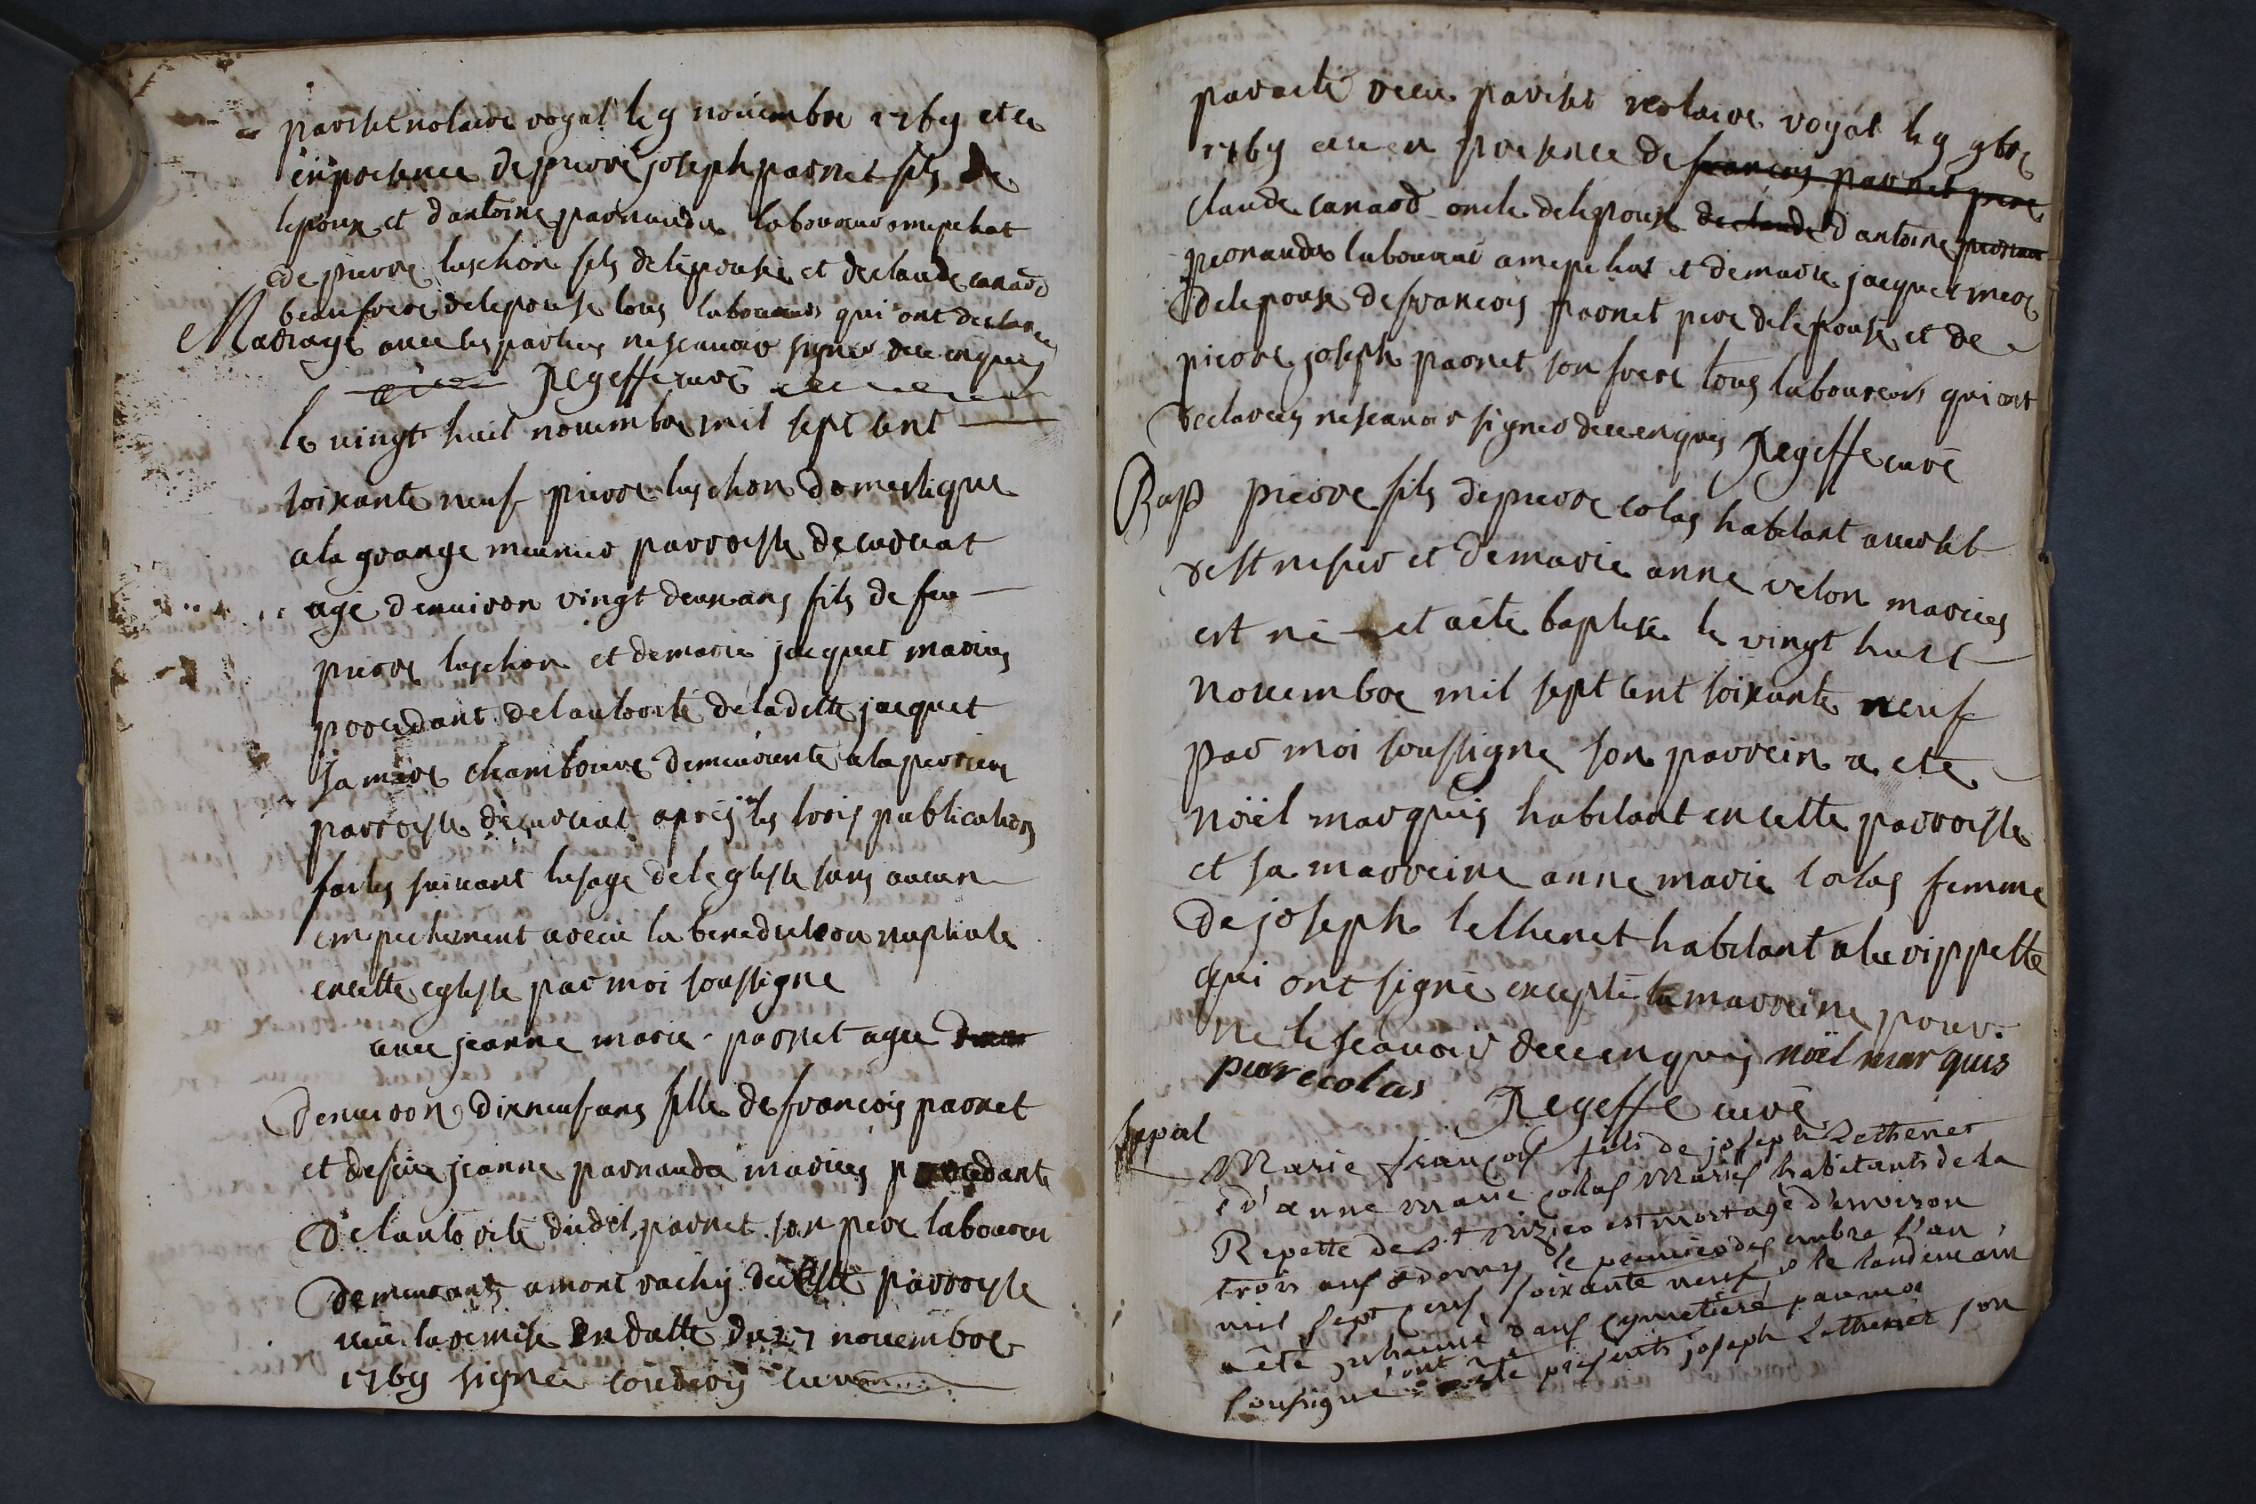 parisset notaire royal le 9 novembre 1769 et ce
en presence de pierre joseph parnet fils de
lepoux et dantoine parnaudu laboureur amepehat
de pierre luschon fils de lepouse et de claude canard
beaufrere delepouse tous laboureurs qui ont declarez
Mariage avec les parties ne scavoir signer dece enquis
Regeffe curé
le vingt huit novembre mil sept cent
soixante neuf pierre luschon domestique
a la grange meunier parroisse de curciat
agé d'environ vingt deux ans fils de feu
pierre luschon et de marie jacquet mariés
procedant de lautorité de laditte jacquet
sa mere chambriere demeurante a la perriere
parroisse de curciat après les trois publications
faites suivant lusage de leglise sans aucun
empechement a recu la benediction nuptiale
en cette eglise par moi soussigne
avec jeanne marie parnet agee
denviron dixneuf ans fille de francois parnet
et de feue jeanne parnaudu mariés procedante
de lautorité dudit parnet son pere laboureur
demeurants a mont rachy de cette parroisse
veu la remise en datte du 27 novembre
1769 signée coudroy curé
par acte recu parisset notaire royal le 9 9bre
1769 et ce en presence de francois parnet pere
claude canard oncle de lepoux de claude d antoine
pernaudu laboureur amepehat et de marie jacquet mere
delepouse de francois parnet pere de lepouse et de
pierre joseph parnet son frere tous laboureurs qui ont
declarés ne scavoir signer dece enquis Regeffe curé
Bapt pierre fils de pierre colas habitant
et de marie anne velon mariés
est né et a été baptisé le vingt huit
novembre mil sept cent soixante neuf
par moi soussigne son parrein a eté
noël marquis habitant en cette parroisse
et sa marreine anne marie colas femme
de joseph lethenet habitant a la rippette
qui ont signé excepté la marreine pour
ne le scavoir dece enquis noël marquis
pierre colas Regeffe curé
Sepul
Marie françois fils de joseph Lethenet
& d'anne marie collas mariés habitants de la
Repette de st nizier est mort agé d'environ
trois ans & demy le premier decembre l'an
mil sept cens soixante neuf, & le landemain
a été inhumé dans cymetiere par moi
sousigné ont été presents joseph Lethenet son